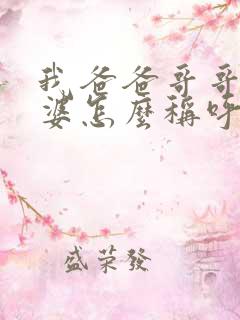 我爸爸哥哥
婆怎麼稱呼
盛荣發